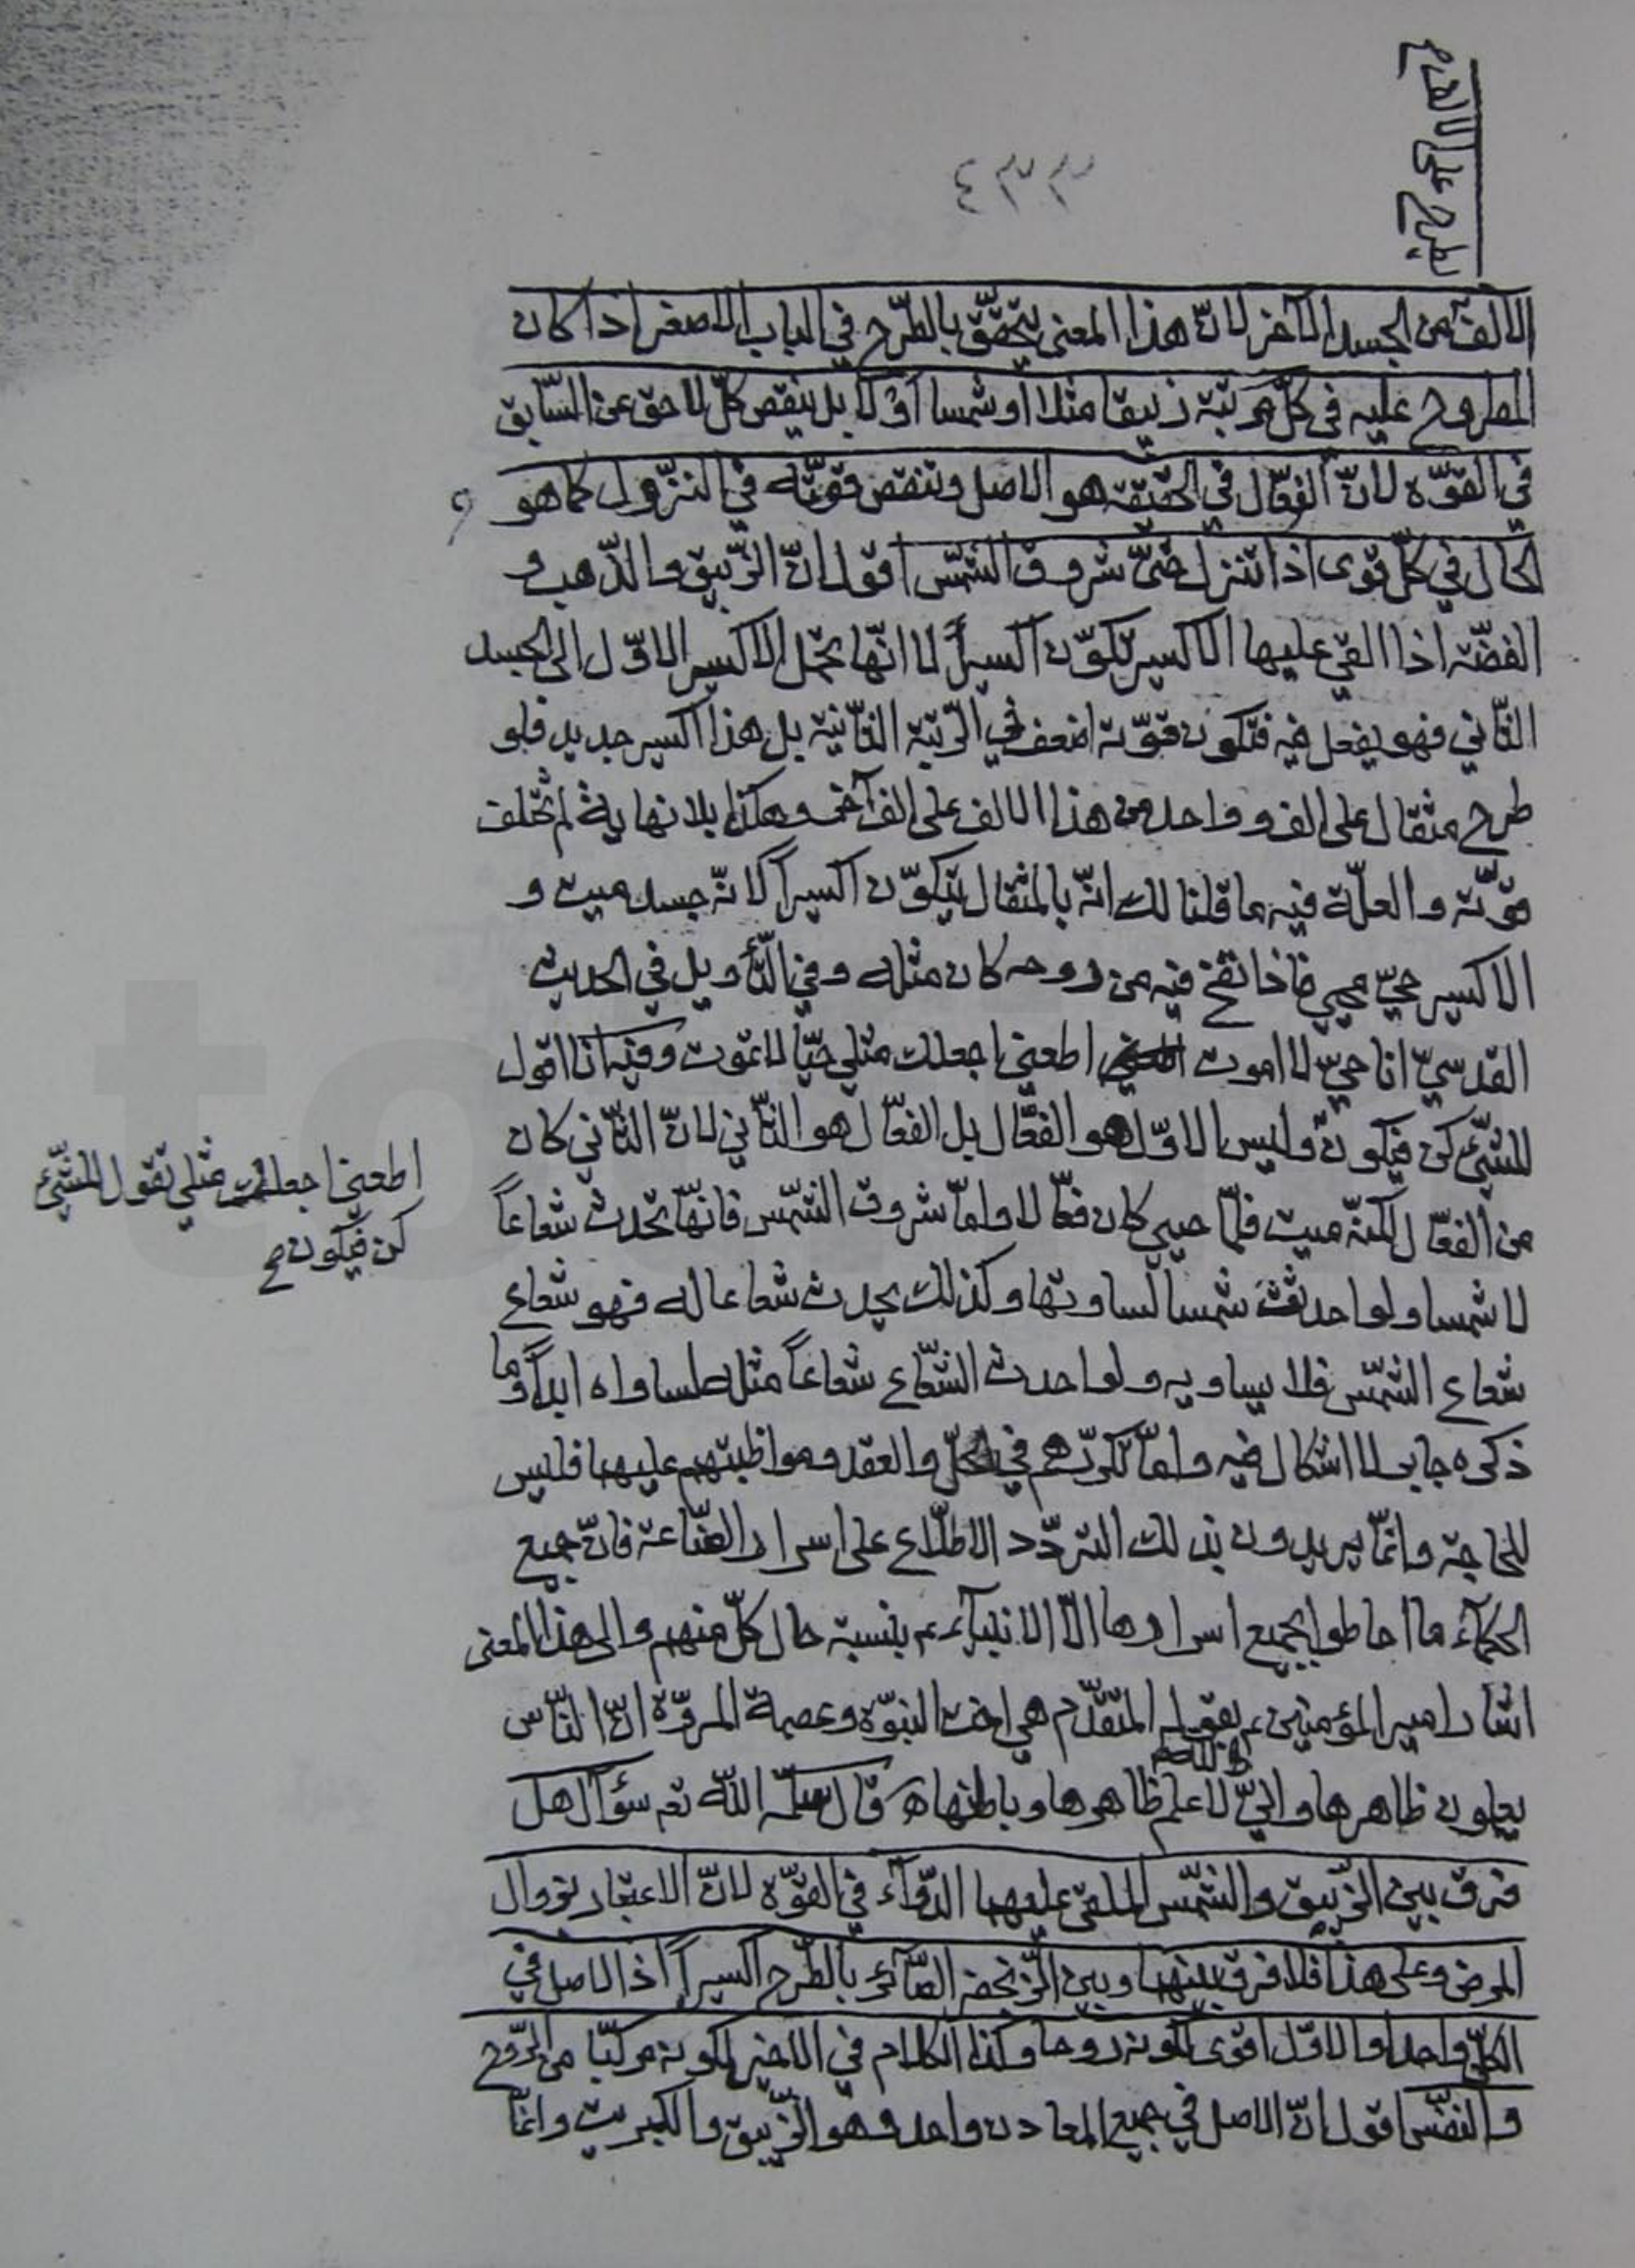 يطرح على الالف
٤٣٣
الالف من الجسد الآخر لانّ هذا المعنى يتحقّق بالطّرح في الباب الاصغر اذا كان
المطروح عليه في كلّ مرتبة زيبقا مثلا او شمسا اوّلا بل ينقص كلّ لاحق عن السّابق
في القوّه لانّ الفعّال في الحقيقه هو الاصل و تنقص قوّته في النزول كما هو
الحال في كلّ قوى اذا تنزل حتىّ شروق الشّمس اقول انّ الزّيبق و الذّهب و
الفضّة اذا القي عليها الاكسير تكوّن اكسيراً لا انّها تحمل الاكسير الاوّل الى الجسد
الثّاني فهو يفعل فيه فتكون قوّته اضعف في الرّتبة الثّانية بل هذا اكسير جديد فلو
طرح مثقال على الف و واحد من هذا الالف على الف آخر و هكذا بلا نهاية لم تختلف
قوّته و العلّة فيه ما قلنا لك انّه بالمثقال يتكوّن اكسيراً لانّه جسد ميت و
الاكسير حيّ محيي فاذا نفخ فيه من روحه كان مثله و في التّأويل في الحديث
القدسيّ انا حيّ لا اموت اطعني اجعلك مثلي حيّا لا تموت و فيه انا اقول
للشّيء كن فيكون و ليس الاوّل هو الفعّال بل الفعّال هو الثّاني لانّ الثّاني كان
من الفعّال لكنّه ميت فلمّا حيي كان فعّالا و امّا شروق الشّمس فانّها تحدث شعاعاً
لا شمسا و لو احدثت شمسا لساوتها و كذلك يحدث شعاعا له فهو شعاع
شعاع الشّمس فلا يساويه و لو احدث الشّعاع شعاعاً مثله لساواه ابداً و ما
ذكره جابر لا اشكال فيه و امّا تكرّرهم في الحلّ و العقد و مواظبتهم عليهما فليس
للحاجة و انّما يريدون بذلك التردّد الاطّلاع على اسرار الصّناعة فانّ جميع
الحكمآء ما احاطوا بجميع اسرارها الّا الانبيآء ع بنسبة حال كلّ منهم و الى هذا المعنى
اشار امير المؤمنين ع بقوله المتقدّم هي اخت النبوّة و عصمة المروّة انّ النّاس
يعلمون ظاهرها و انّي لاعلم ظاهرها و باطنها قال سلّمه اللّه تع سؤال هل
فرق بين الزّيبق و الشّمس الملقى عليهما الدّوآء في القوّه لانّ الاعتبار بزوال
المرض و على هذا فلا فرق بينهما و بين الزّنجفر الصّآئر بالطّرح اكسيراً اذ الاصل في
الكلّ واحد او الاوّل اقوى لكونه روحا و كذا الكلام في الاخير لكونه مركّبا من الرّوح
و النفس اقول انّ الاصل في جميع المعادن واحد و هو الزّيبق و الكبريت و انّما
اطعني اجعلك مثلي تقول للشّيء
كن فيكون